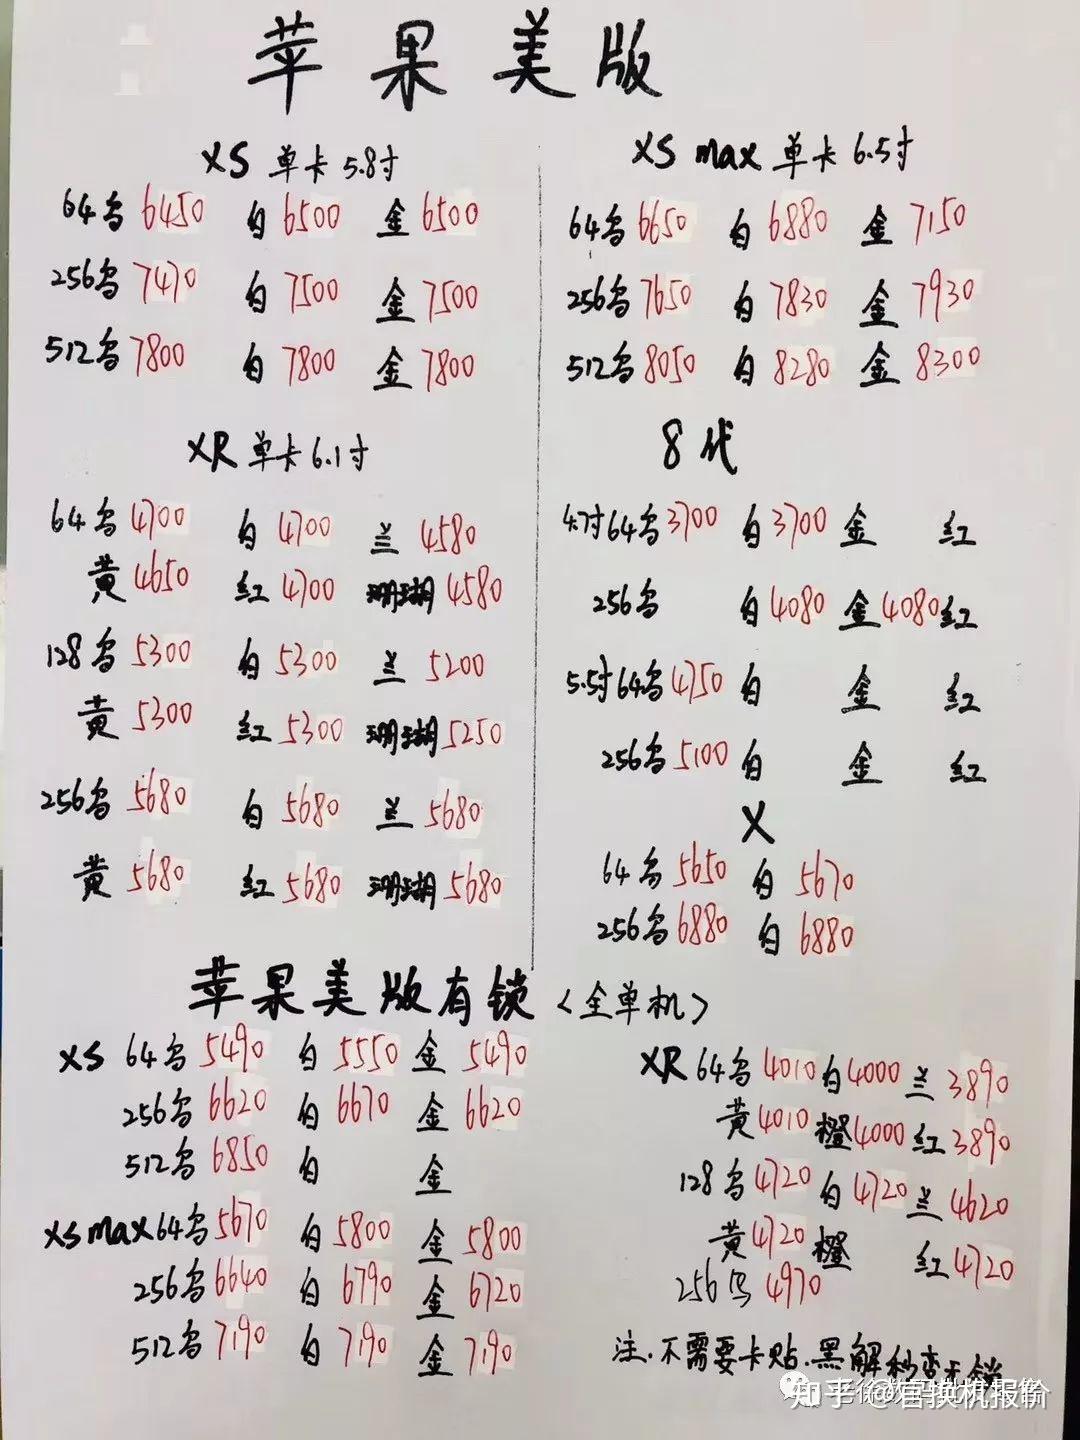 苹果美版
XS 单卡 5.8寸
64乌 6450 白 6500 金 6500
256乌 7470 白 7500 金 7500
512乌 7800 白 7800 金 7800
XS max 单卡 6.5寸
64乌 6650 白 6880 金 7150
256乌 7650 白 7830 金 7930
512乌 8050 白 8280 金 8300
XR 单卡 6.1寸
64乌 4700 白 4700 兰 4580
黄 4650 红 4700 珊瑚 4580
128乌 5300 白 5300 兰 5200
黄 5300 红 5300 珊瑚 5250
256乌 5680 白 5680 兰 5680
黄 5680 红 5680 珊瑚 5680
8代
4.7寸 64乌 3700 白 3700 金 红
256乌 白 4080 金 4080 红
5.5寸 64乌 4750 白 金 红
256乌 5100 白 金 红
X
64乌 5650 白 5670
256乌 6880 白 6880
苹果美版有锁〈全单机〉
XS 64乌 5490 白 5550 金 5490
256乌 6620 白 6670 金 6620
512乌 6850 白 金
XS max 64乌 5670 白 5800 金 5800
256乌 6640 白 6790 金 6720
512乌 7190 白 7190 金 7190
XR 64乌 4010 白 4000 兰 3890
黄 4010 橙 4000 红 3890
128乌 4720 白 4720 兰 4620
黄 4720 橙 红 4720
256乌 4970
注.不需要卡贴.黑解秒变无锁
知乎 @官换机报价